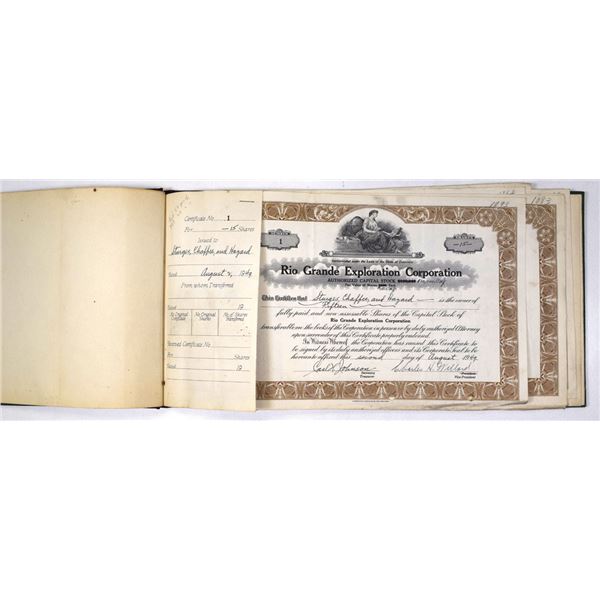 Certificate No. 1
For —15— Shares
Issued to
Sturges, Chaffee, and Hazard
Dated August 2, 1949
From whom Transferred
Dated 19
No. Original Certificate
No. Original Shares
No. of Shares Transferred
Received Certificate No.
For Shares
19
1892
1882
NUMBER
1
SHARES
—15—
Incorporated under the Laws of the State of
Rio Grande Exploration Corporation
AUTHORIZED CAPITAL STOCK
This Certifies that Sturges, Chaffee, and Hazard is the owner of
Fifteen
fully paid and non assessable Shares of the Capital Stock of
Rio Grande Exploration Corporation
transferable on the books of the Corporation in person or by duly authorized Attorney
upon surrender of this Certificate properly endorsed.
In Witness Whereof, the Corporation has caused this Certificate to
be signed by its duly authorized officers and its Corporate Seal to be
hereunto affixed this second day of August 1949
Carl L. Johnson Charles H. Willard
Secretary President
Treasurer Vice-President